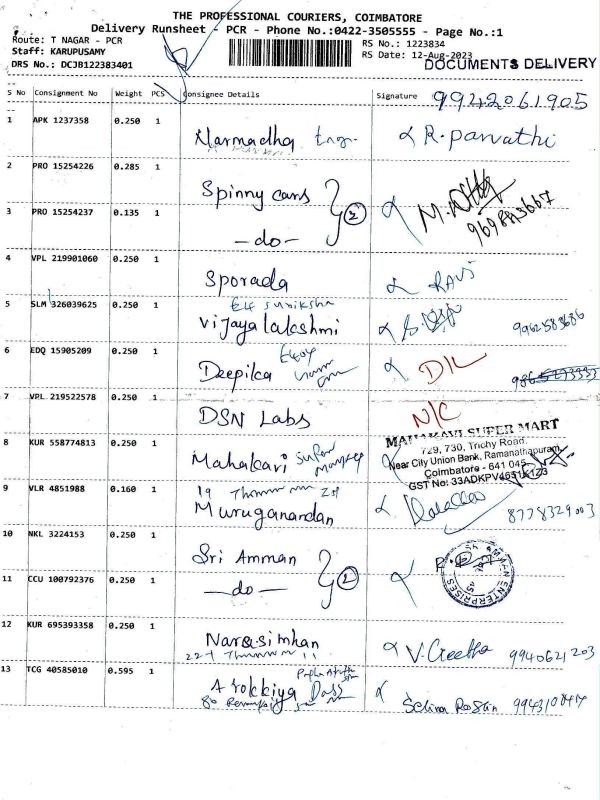 THE PROFESSIONAL COURIERS, COIMBATORE
Delivery Runsheet - PCR - Phone No.:0422-3505555 - Page No.:1
Route: T NAGAR - PCR
Staff: KARUPUSAMY
DRS No.: DCJB122383401
RS No.: 1223834
RS Date: 12-Aug-2023
DOCUMENTS DELIVERY
S No Consignment No Weight PCS Consignee Details Signature 9942061905
1 APK 1237358 0.250 1 Marmadha R. parvathi
2 PRO 15254226 0.285 1 Spinny cars 2
3 PRO 15254237 0.135 1 -do-
4 VPL 219901060 0.250 1 Sporada RAVI
5 SLM 326039625 0.250 1 Vijayalakshmi
6 EDQ 15905209 0.250 1 Deepika D/L
7 VPL 219522578 0.250 1 DSN Labs N/C
8 KUR 558774813 0.250 1 Mahakavi Super
MAHAKAVI SUPER MART
729, 730, Trichy Road,
Near City Union Bank, Ramanathapuram,
Coimbatore - 641 045.
9 VLR 4851988 0.160 1 Muruganandan 8778329003
10 NKL 3224153 0.250 1 Sri Amman 2
11 CCU 100792376 0.250 1 -do-
12 KUR 695393358 0.250 1 Narasimhan V. Geetha 9940621203
13 TCG 40585010 0.595 1 Arokkiya Dass